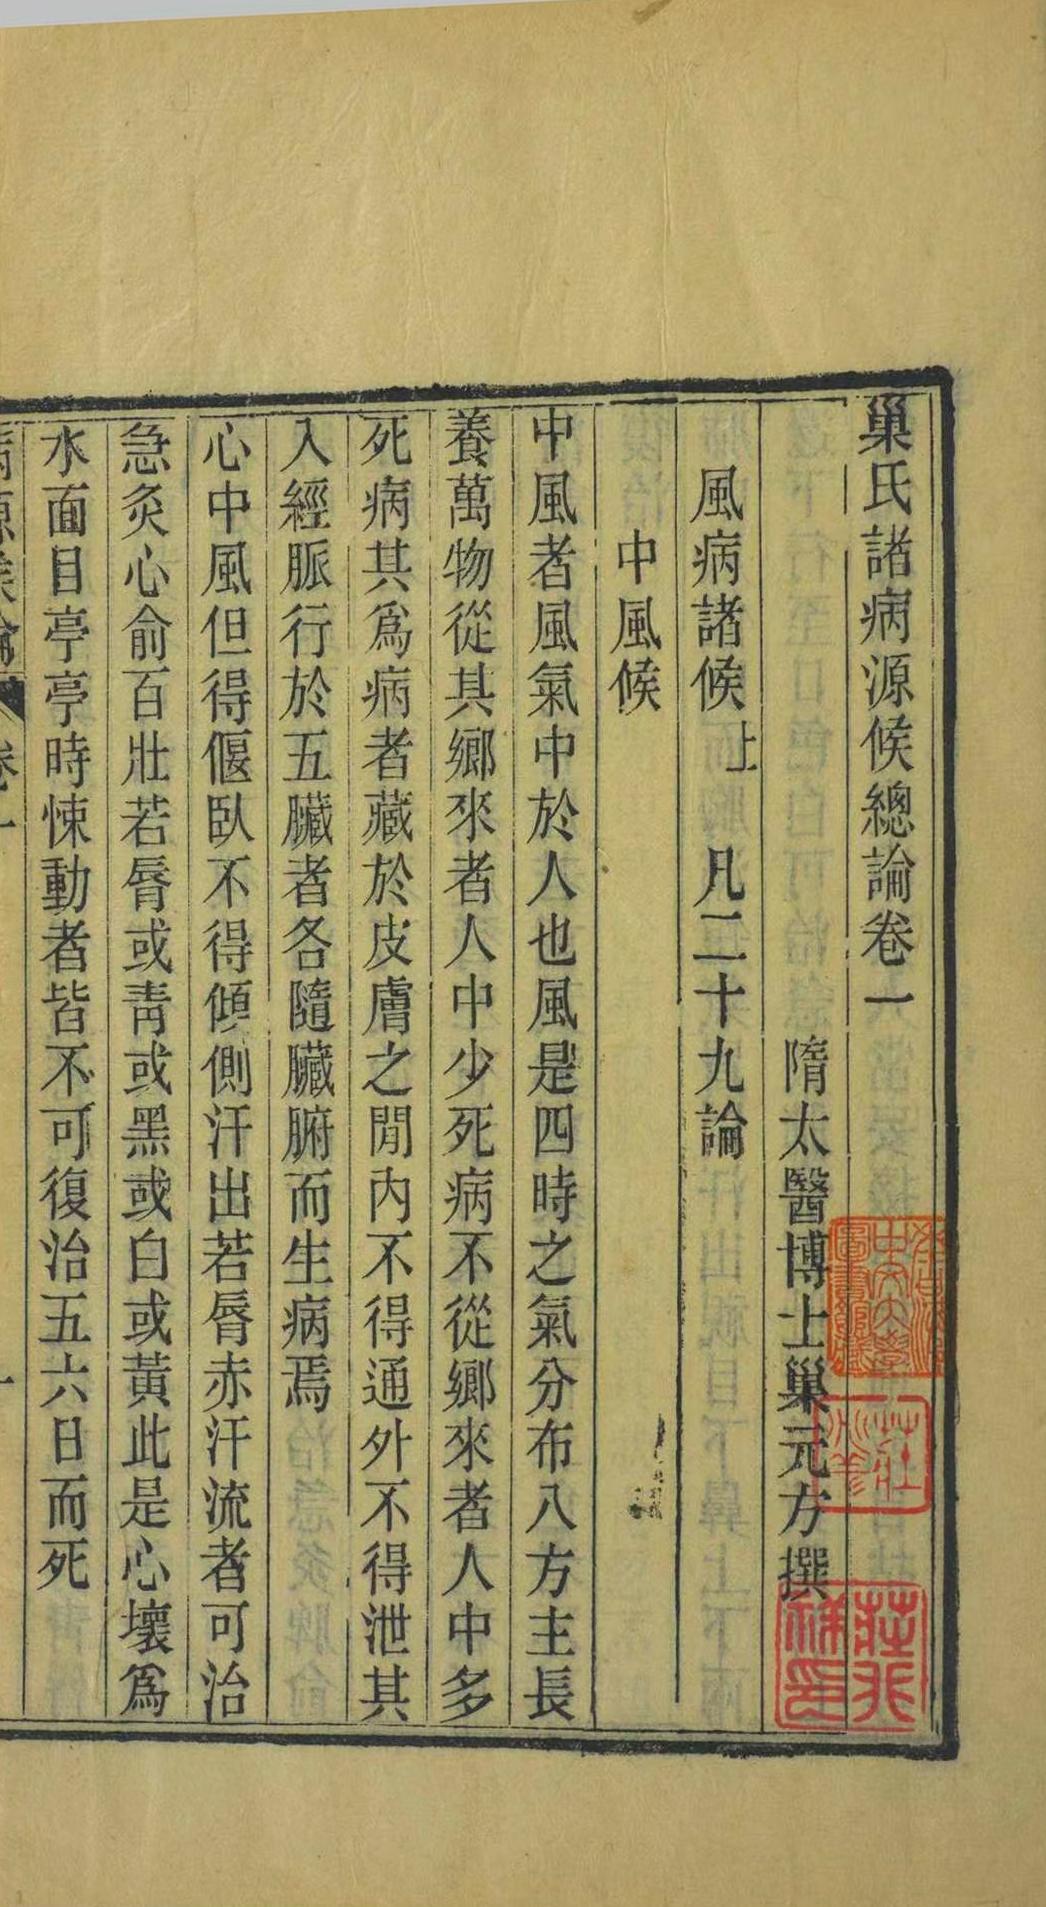 巢氏諸病源候總論卷一
隋太醫博士巢元方撰
風病諸候上　凡二十九論
中風候
中風者風氣中於人也風是四時之氣分布八方主長
養萬物從其鄉來者人中少死病不從鄉來者人中多
死病其爲病者藏於皮膚之閒內不得通外不得泄其
入經脈行於五臟者各隨臟腑而生病焉
心中風但得偃臥不得傾側汗出若脣赤汗流者可治
急灸心俞百壯若脣或靑或黑或白或黃此是心壞爲
水面目亭亭時悚動者皆不可復治五六日而死